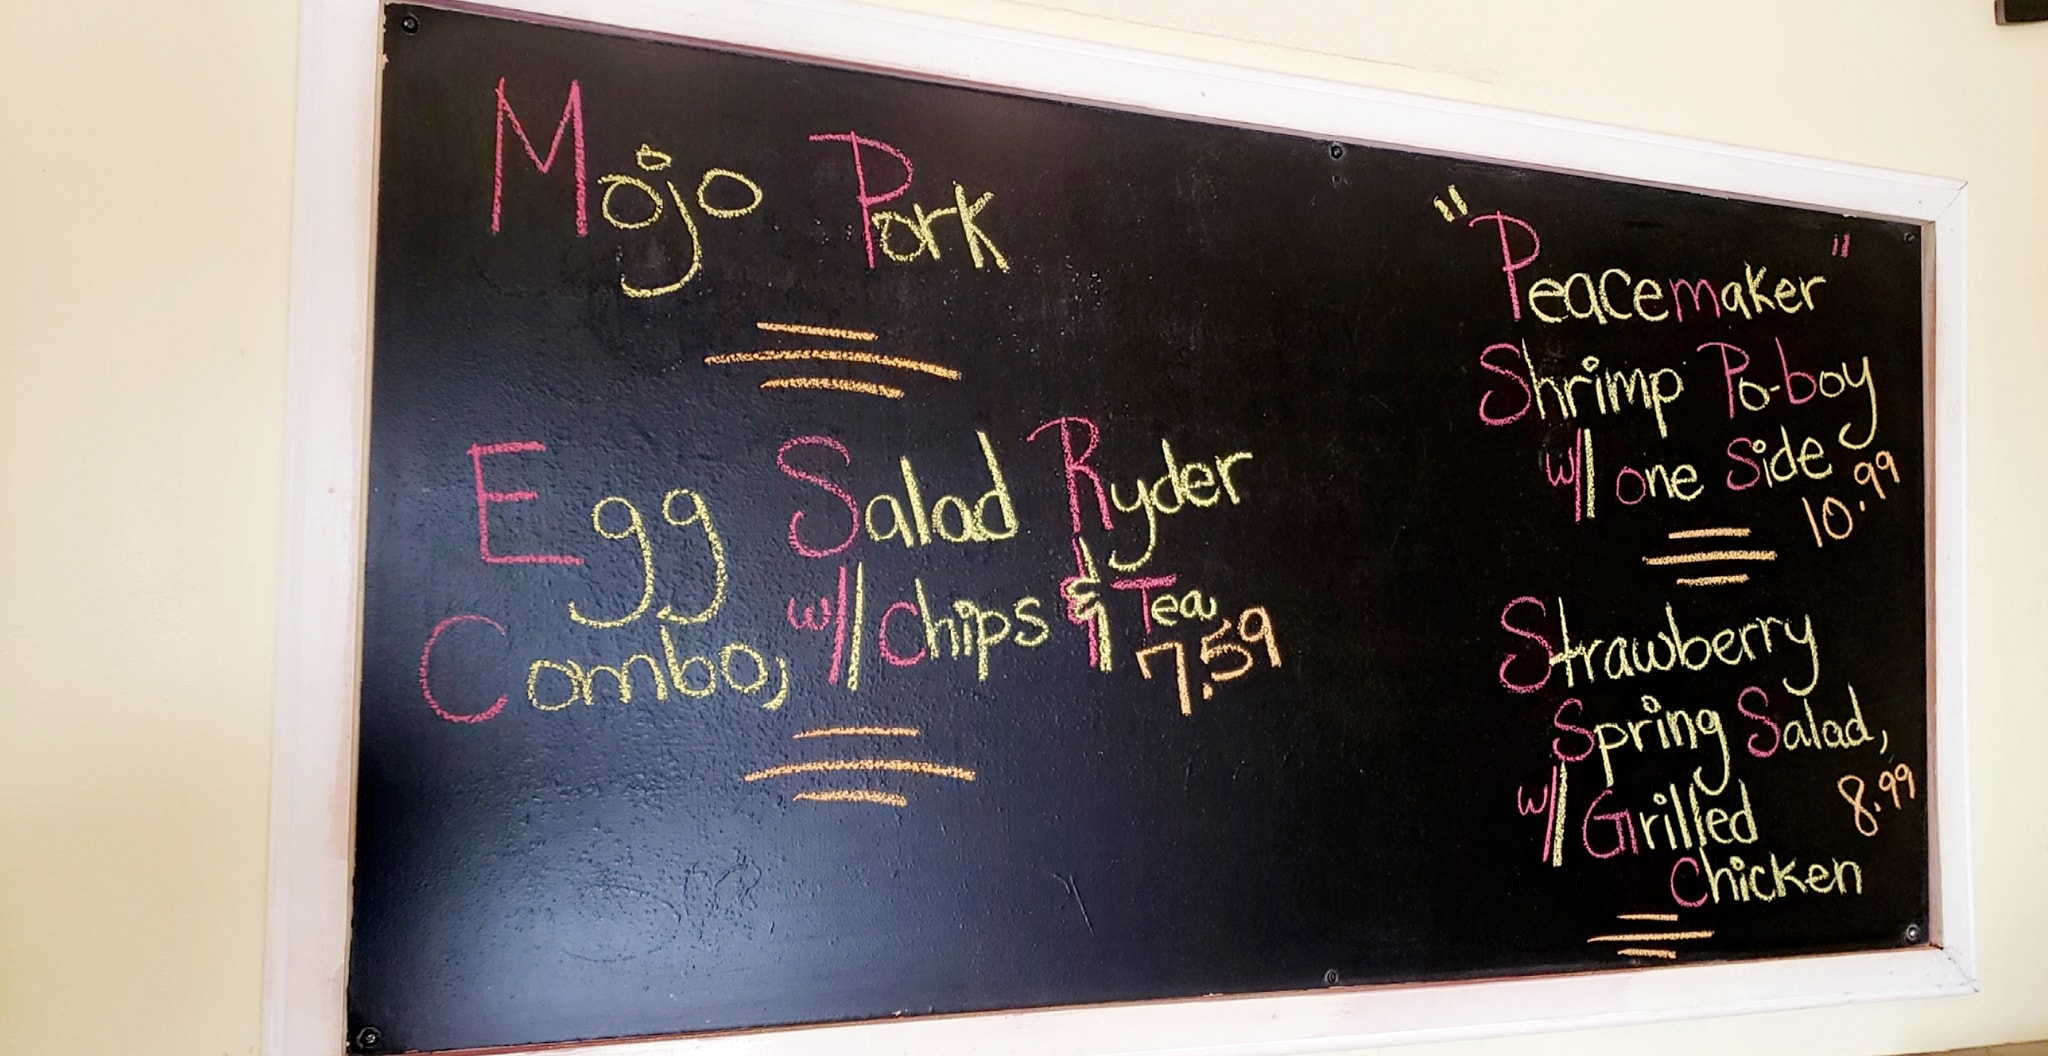 Mojo Pork
Egg Salad Ryder
Combo, w/ Chips & Tea
7.59
"Peacemaker"
Shrimp Po-boy
w/ one Side
10.99
Strawberry
Spring Salad,
w/ Grilled 8.99
Chicken